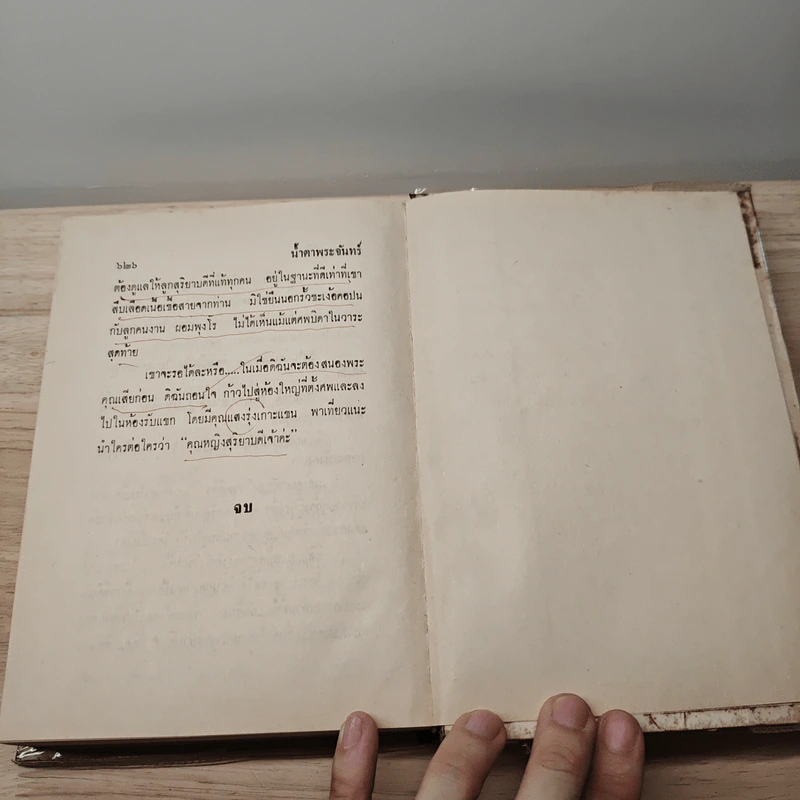 ๖๒๖ น้ำตาพระจันทร์
ต้องดูแลให้ลูกสุริยาบดีที่แท้ทุกคน อยู่ในฐานะที่ดีเท่าที่เขา
สืบเลือดเนื้อเชื้อสายจากท่าน มิใช่ยืนนอกรั้วชะเง้อคอปน
กับลูกคนงาน ผอมพุงโร ไม่ได้เห็นแม้แต่ศพบิดาในวาระ
สุดท้าย
เขาจะรอได้ละหรือ.....ในเมื่อดิฉันจะต้องสนองพระ
คุณเสียก่อน ดิฉันถอนใจ ก้าวไปสู่ห้องใหญ่ที่ตั้งศพและลง
ไปในห้องรับแขก โดยมีคุณแสงรุ่งเกาะแขน พาเที่ยวแนะ
นำใครต่อใครว่า “คุณหญิงสุริยาบดีเจ้าค่ะ”
จบ